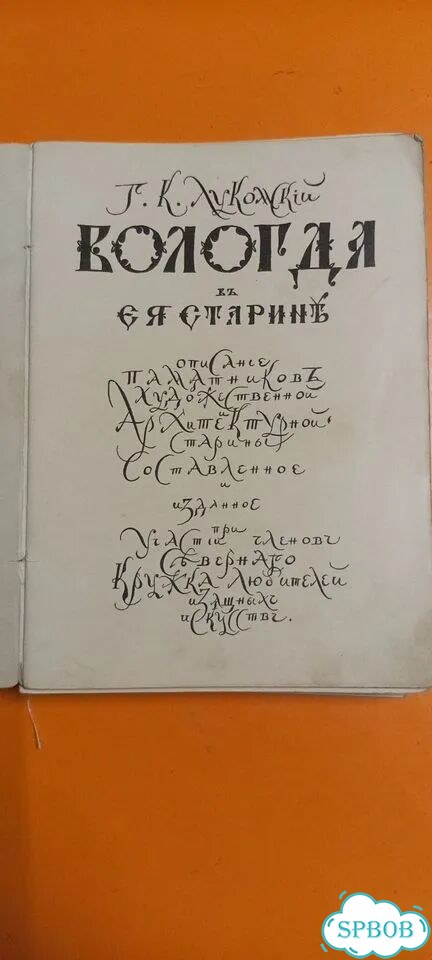 Г. К. Лукомскій
ВОЛОГДА
въ
ЕЯ СТАРИНѢ
описаніе
памятниковъ
художественной
и
архитектурной
старины
составленное
и
изданное
при
участіи членовъ
Сѣвернаго
Кружка Любителей
изящныхъ
искусствъ.
SPBOB